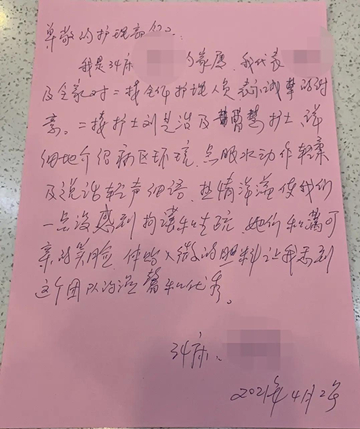 尊敬的护理部
我是34床 的家属,我代表
及全家对二楼全体护理人员表示诚挚的谢
意。二楼护士刘 浩及 慧护士,详
细地介绍病区环境,点眼水动作轻柔
及说话轻声细语,热情洋溢使我们
一点没感到拘谨和生疏,她们和蔼可
亲的笑脸,体贴入微的照料,让我看到
这个团队的温馨和优秀。
34床:
2021年4月2号